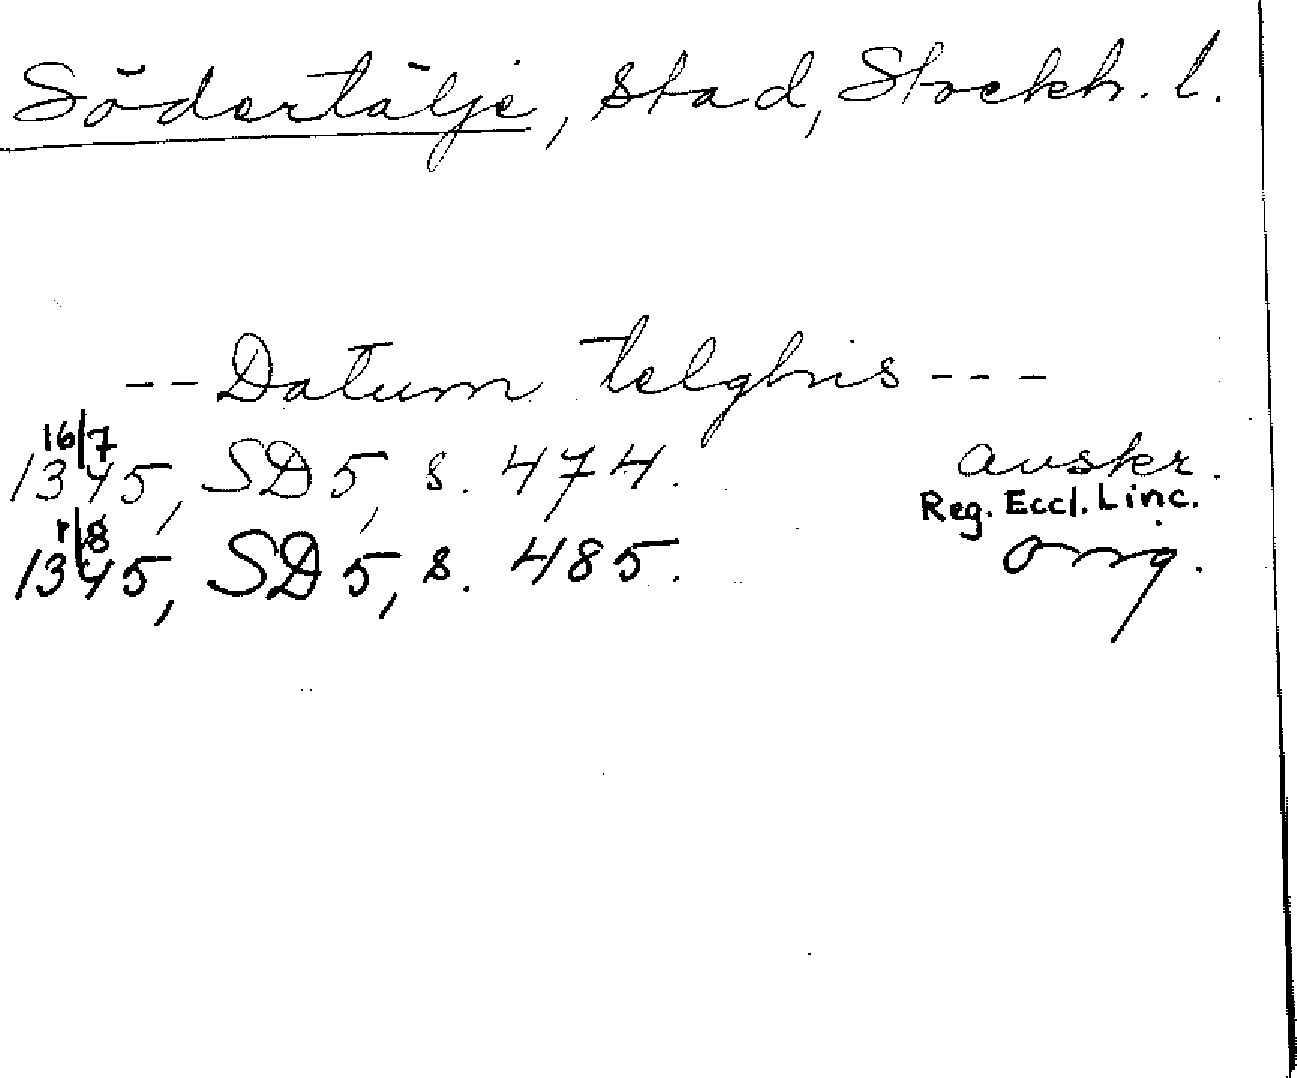 Södertälje, stad, Stockh. l.
-- Datum telghis ---
16/7
1345, SD 5, s. 474. avskr.
Reg. Eccl. Linc.
1/8
1345, SD 5, s. 485. orig.